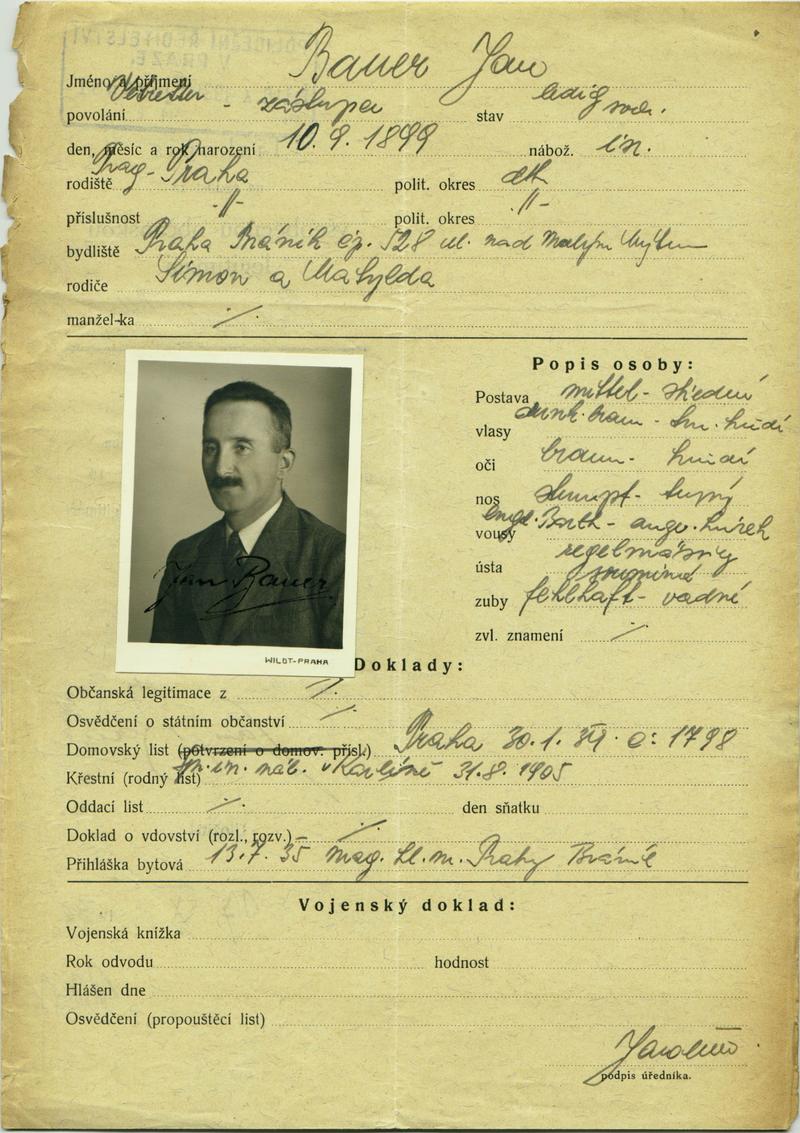 POLICEJNÍ ŘEDITELSTVÍ
V PRAZE.
Jméno a příjmení Bauer Jan
povolání Vertreter - zástupce stav ledig svob.
den, měsíc a rok narození 10. 9. 1899 nábož. iz.
rodiště Prag - Praha polit. okres dtt
příslušnost -"- polit. okres -"-
bydliště Praha Bráník čp. 528 ul. nad Malým Mýtem
rodiče Simon a Matylda
manžel-ka ./.
Popis osoby:
Postava mittel - střední
vlasy dunk. braun - tm. hnědí
oči braun - hnědí
nos stumpf - tupý
vousy engl. Bart - angl. knírek
ústa regelmässig
souměrné
zuby fehlhaft - vadné
zvl. znamení ./.
Jan Bauer
WILDT-PRAHA
Doklady:
Občanská legitimace z ./.
Osvědčení o státním občanství ./.
Domovský list (potvrzení o domov. přísl.) Praha 30. 1. 39 č: 1798
Křestní (rodný list) iz. náb. v Karlíně 31. 8. 1905
Oddací list ./. den sňatku
Doklad o vdovství (rozl., rozv.) ./.
Přihláška bytová 13. 7. 35 mag. hl. m. Prahy Bráník
Vojenský doklad:
Vojenská knížka
Rok odvodu hodnost
Hlášen dne
Osvědčení (propouštěcí list)
podpis úředníka.